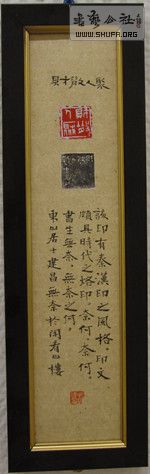 書藝公社
HTTP://WWW.SHUFA.ORG
聚人散才具
該印有秦漢印之風格印文
頗具時代之烙印奈何奈何
書生無奈無奈之何
東山居士建昌無奈於閑有山樓